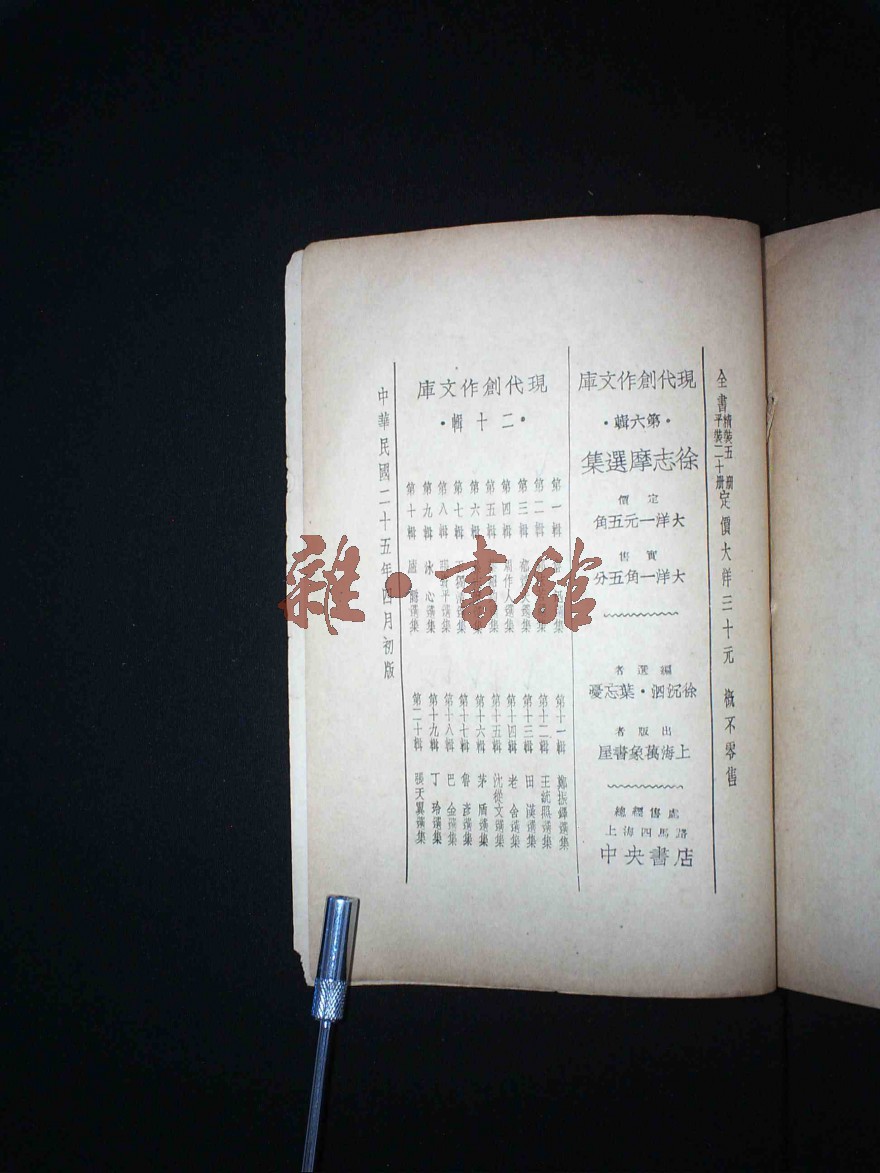 全書精裝五冊平裝二十冊定價大洋三十元 概不零售
現代創作文庫
・第六輯・
徐志摩選集
定價
大洋一元五角
實售
大洋一角五分
編選者
徐沉泗・葉忘憂
出版者
上海萬象書屋
總經售處
上海四馬路
中央書店
現代創作文庫
・二十輯・
第一輯 選集
第二輯 選集
第三輯 選集
第四輯 周作人選集
第五輯 選集
第六輯 選集
第七輯 選集
第八輯 選集
第九輯 冰心選集
第十輯 廬隱選集
第十一輯 鄭振鐸選集
第十二輯 王統照選集
第十三輯 田漢選集
第十四輯 老舍選集
第十五輯 沈從文選集
第十六輯 茅盾選集
第十七輯 魯彥選集
第十八輯 巴金選集
第十九輯 丁玲選集
第二十輯 張天翼選集
中華民國二十五年四月初版
雜・書館